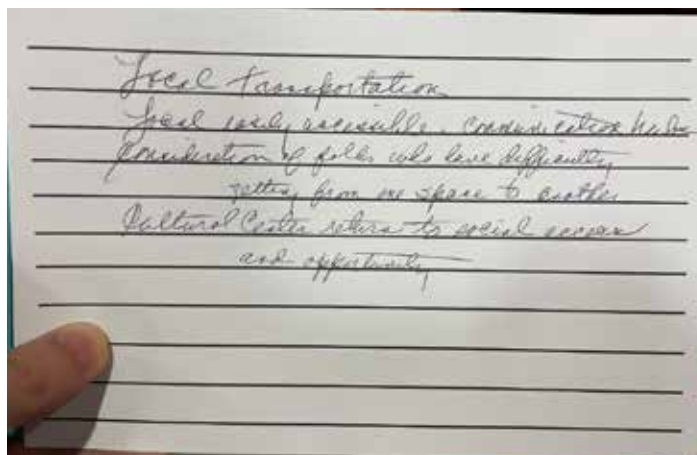 Local transportation
Local easily accessible. communication
Consideration of folks who have difficulty
getting from one space to another
Cultural Center return to social
and opportunity